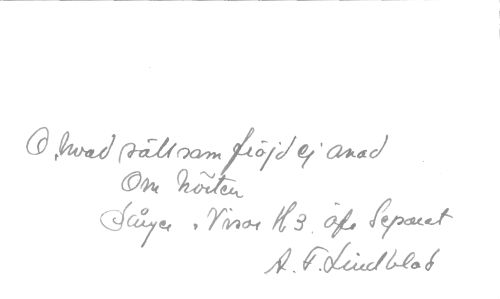 O, hvad sällsam fröjd ej anad
Om hösten
Sånger o Visor H 3. äfv. Separat
A. F. Lindblad